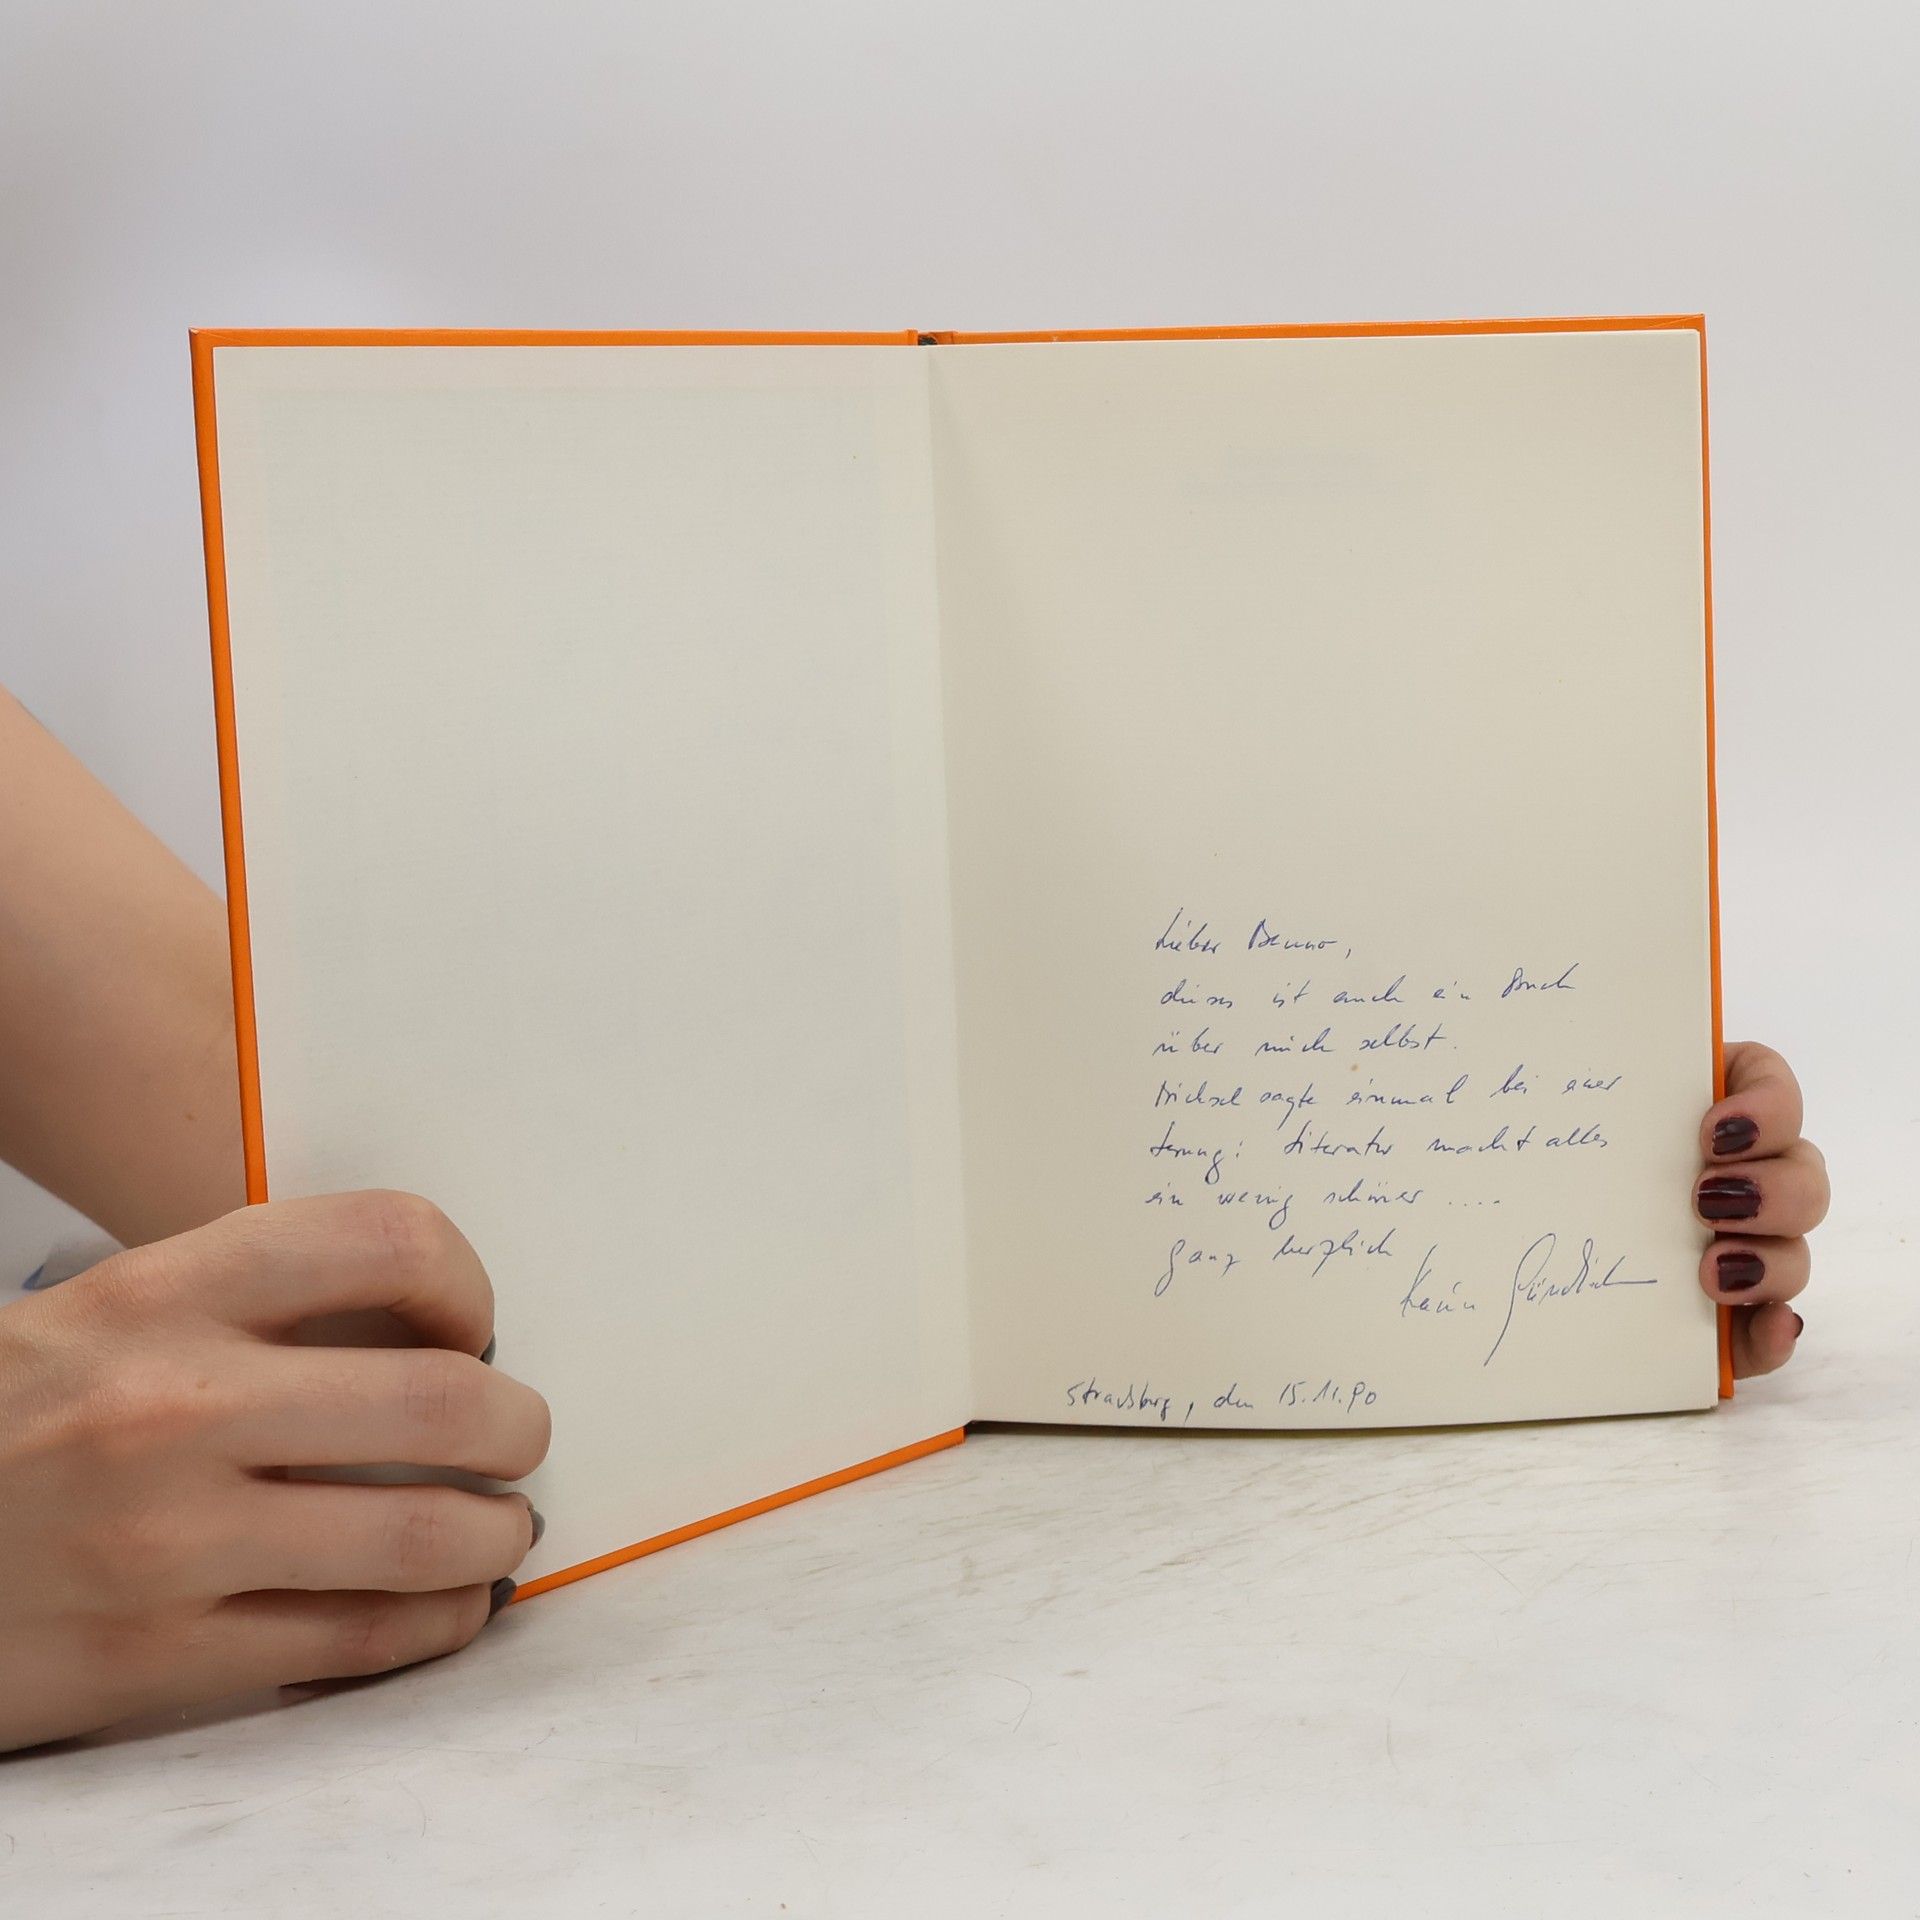 Lieber Benno,
dieses ist auch ein Buch
über mich selbst.
Michael sagte einmal bei einer
Lesung: Literatur macht alles
ein wenig schöner ....
ganz herzlich
Karin Gündisch
Straßburg, den 15.11.90